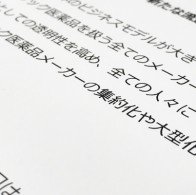 のビジネスモデルが大き
ック医薬品を扱う全てのメーカー
としての透明性を高め、全ての人々に
ク医薬品メーカーの集約化や大型化